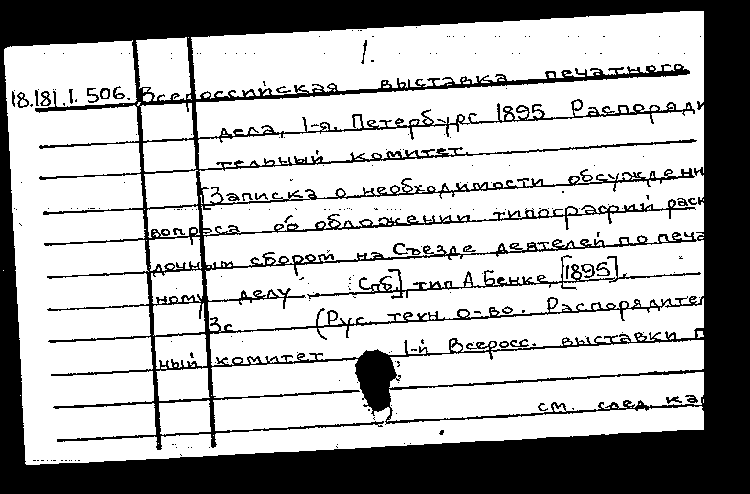 1.
18.181.I.506. Всероссийская выставка печатного
дела, 1-я. Петербург 1895 Распоряди
тельный комитет.
[Записка о необходимости обсужден
вопроса об обложении типографий раск
дочным сбором на Съезде деятелей по печа
ному делу. [Спб], тип А. Бенке, [1895].
3с (Рус. техн о-во. Распорядител
ный комитет 1-й Всеросс. выставки п
см. след ка